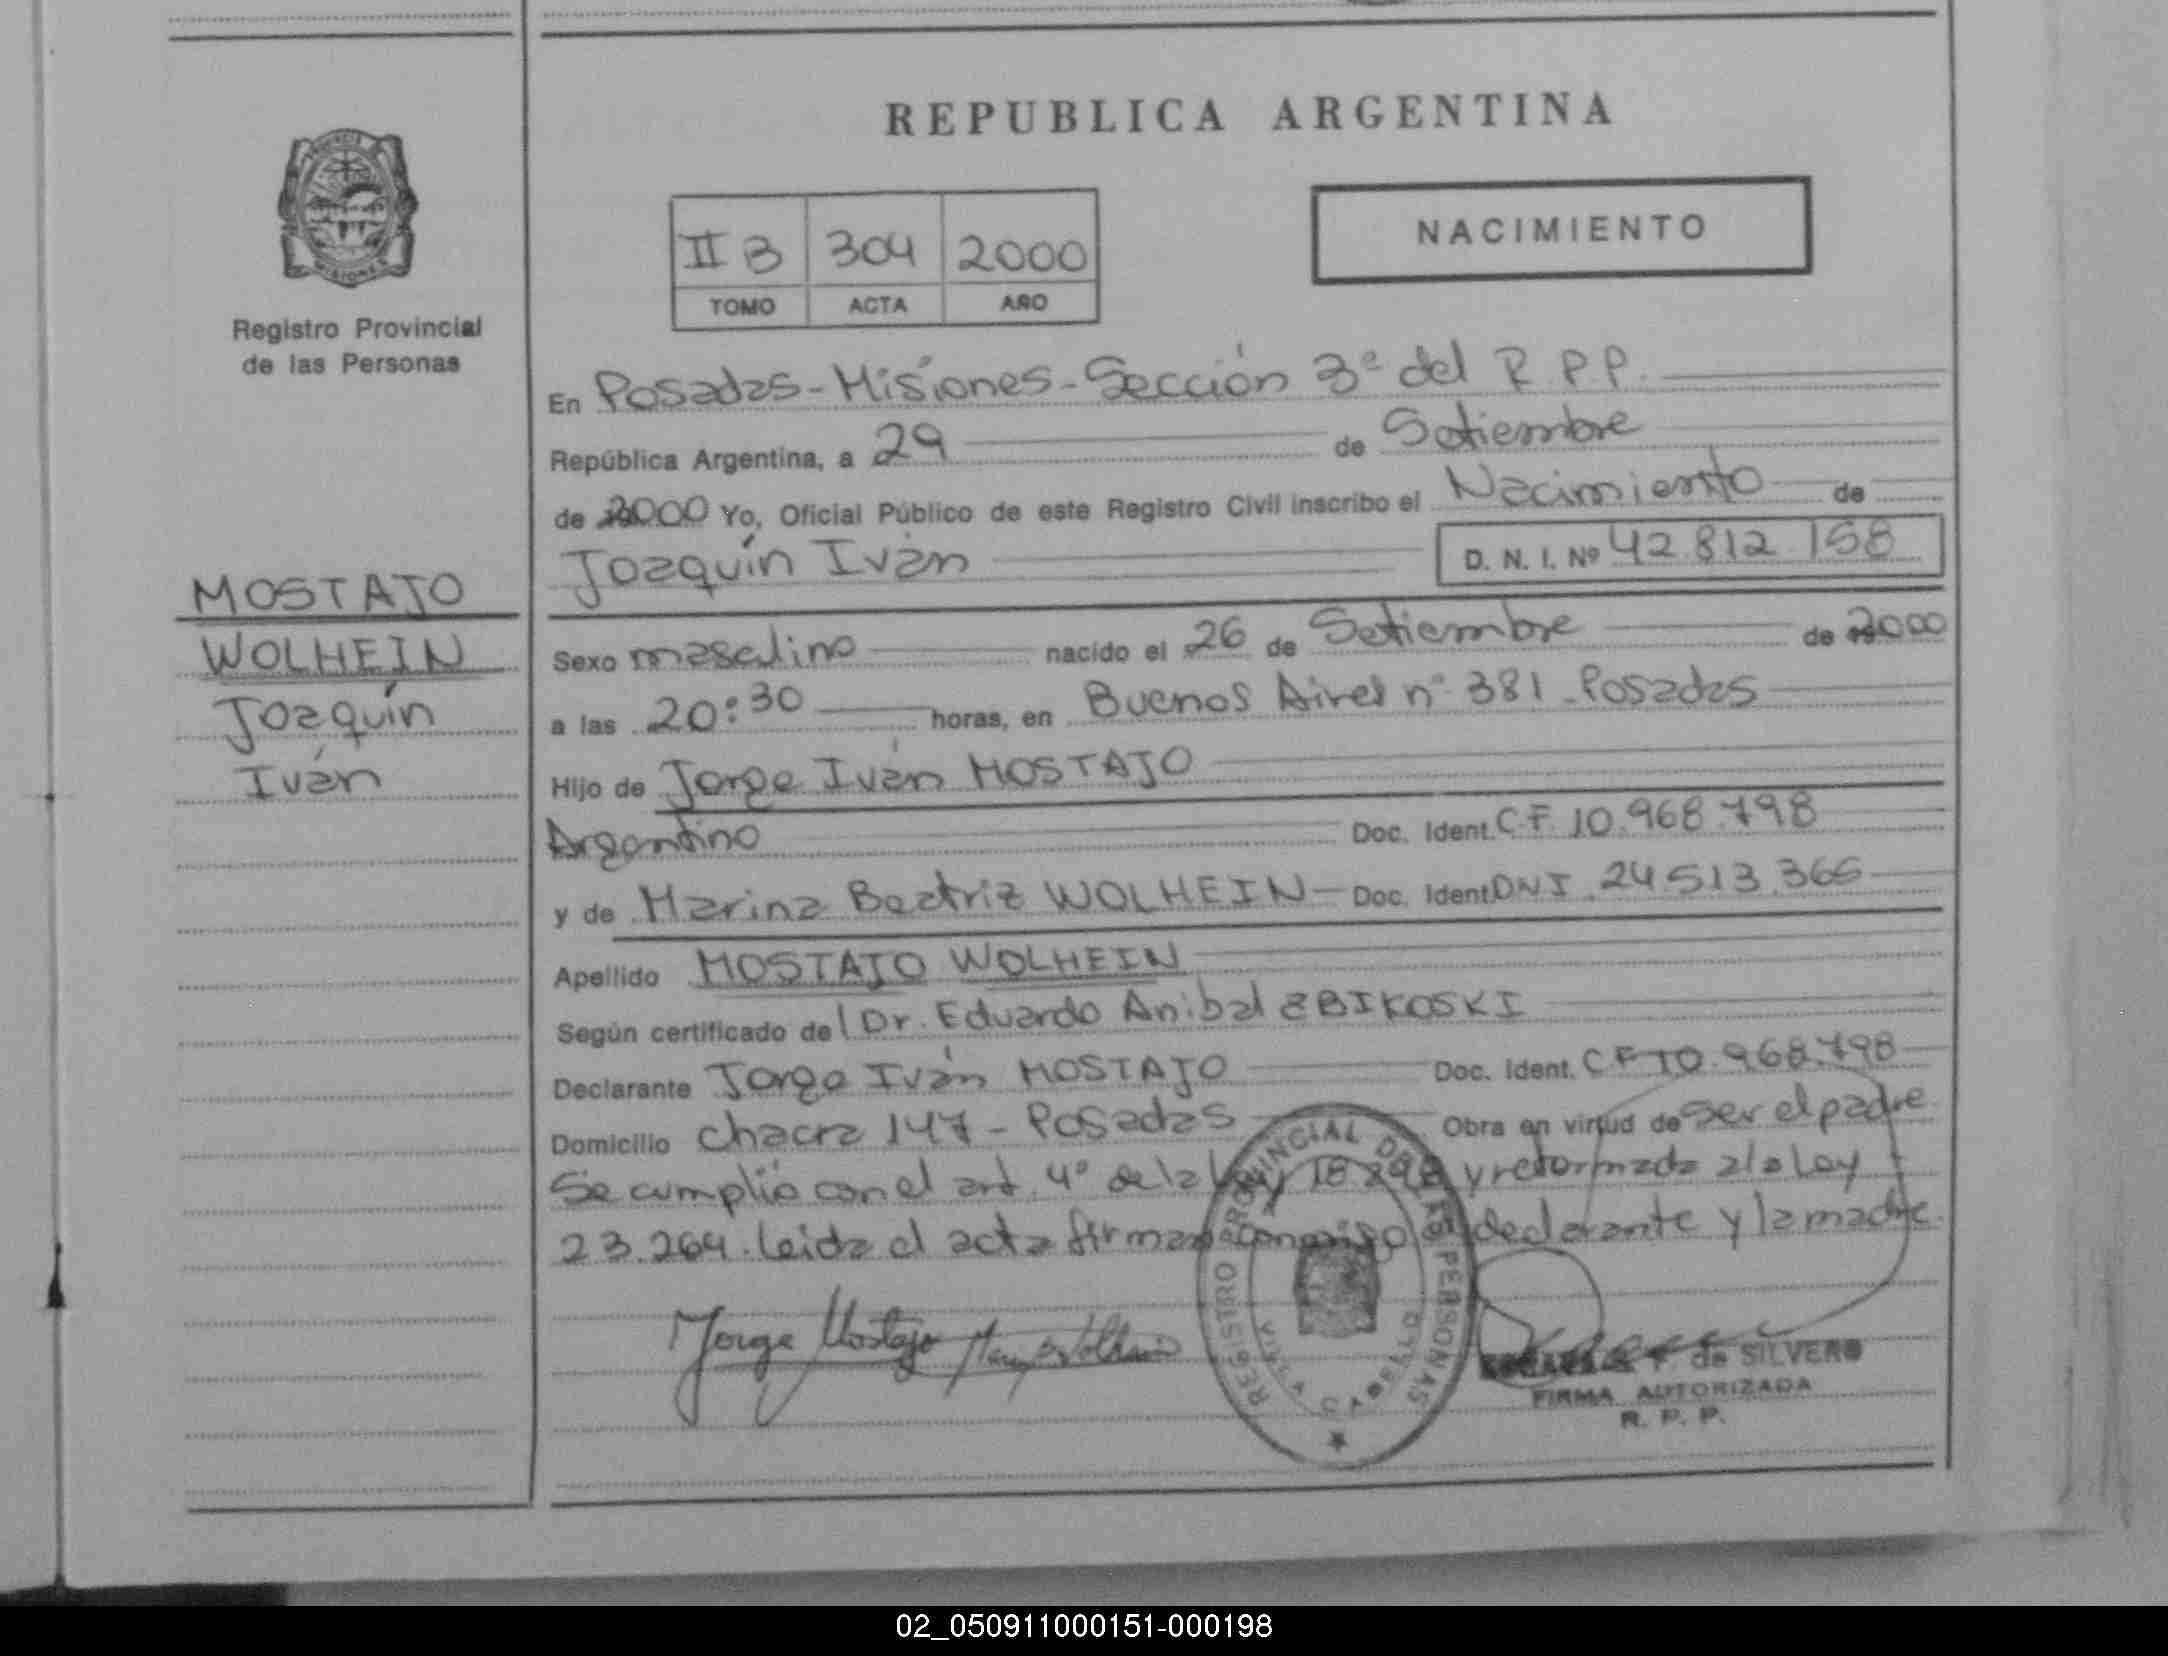 REPUBLICA ARGENTINA
PROVINCIA
MISIONES
Registro Provincial
de las Personas
NACIMIENTO
II B 304 2000
TOMO ACTA AÑO
En Posadas - Misiones - Sección 3ª del R.P.P.
República Argentina, a 29 de Setiembre
de 2000 Yo, Oficial Público de este Registro Civil inscribo el Nacimiento de
Joaquín Iván D. N. I. Nº 42.812.158
MOSTAJO
WOLHEIN
Joaquín
Iván
Sexo masculino nacido el 26 de Setiembre de 2000
a las 20:30 horas, en Buenos Aires nº 381 - Posadas
Hijo de Jorge Iván MOSTAJO
Argentino Doc. Ident. C.F. 10.968.798
y de Marina Beatriz WOLHEIN Doc. Ident. DNI 24.513.366
Apellido MOSTAJO WOLHEIN
Según certificado del Dr. Eduardo Anibal ZBIKOSKI
Declarante Jorge Iván MOSTAJO Doc. Ident. CF 10.968.798
Domicilio chacra 147 - Posadas Obra en virtud de ser el padre
Se cumplió con el art. 4º de la Ley 18.248 y reformada a la Ley
23.264. Leida el acta firman conmigo el declarante y la madre.
Jorge Mostajo
REGISTRO PROVINCIAL DE LAS PERSONAS
POSADAS
F. de SILVERO
FIRMA AUTORIZADA
R. P. P.
02_050911000151-000198